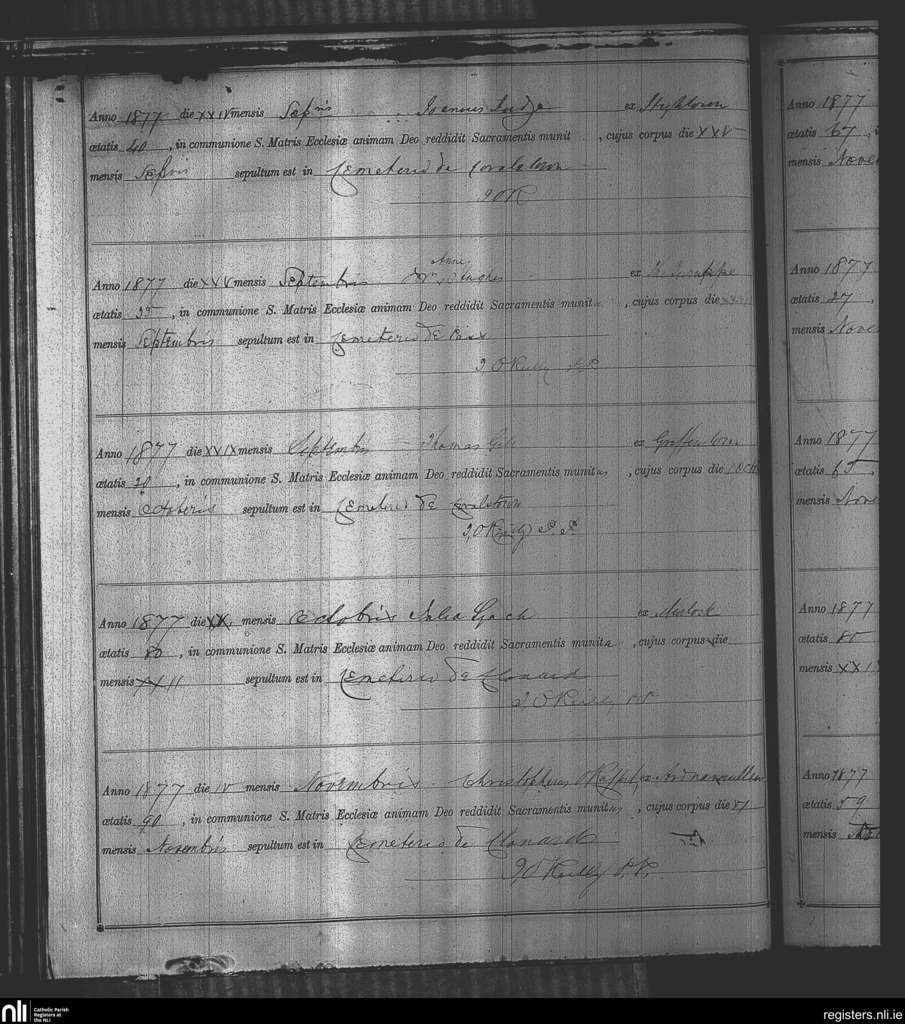 Anno 1877 die XXIV mensis Sepris Joannes Judge ex
ætatis 40, in communione S. Matris Ecclesiæ animam Deo reddidit Sacramentis munit , cujus corpus die XXV
mensis Sepris sepultum est in Cemeterio de Coralstown
J O R
Anno 1877 die XXV mensis Septembris Anne Hughes ex
ætatis 25, in communione S. Matris Ecclesiæ animam Deo reddidit Sacramentis munita , cujus corpus die
mensis Septembris sepultum est in Cemeterio de
J O Reilly P P
Anno 1877 die XXIX mensis Septembris Thomas ex Griffinstown
ætatis 20, in communione S. Matris Ecclesiæ animam Deo reddidit Sacramentis munitus , cujus corpus die 1 Oct
mensis Octobris sepultum est in Cemeterio de Coralstown
J, O Reilly P. P.
Anno 1877 die XX, mensis Octobris Julia ex
ætatis 80, in communione S. Matris Ecclesiæ animam Deo reddidit Sacramentis munita , cujus corpus die
mensis XXII sepultum est in Cemeterio de Clonard
J O Reilly P P
Anno 1877 die IV mensis Novembris Christopherus ex Ardnamullen
ætatis 90, in communione S. Matris Ecclesiæ animam Deo reddidit Sacramentis munitus , cujus corpus die VI
mensis Novembris sepultum est in Cemeterio de Clonard
J, O Reilly P. P.
Anno 1877
ætatis 67,
mensis
Anno 1877
ætatis 27,
mensis
Anno 1877
ætatis 65
mensis
Anno 1877
ætatis 80
mensis
Anno 1877
ætatis 59
mensis
nli Catholic Parish
Registers at
the NLI
registers.nli.ie